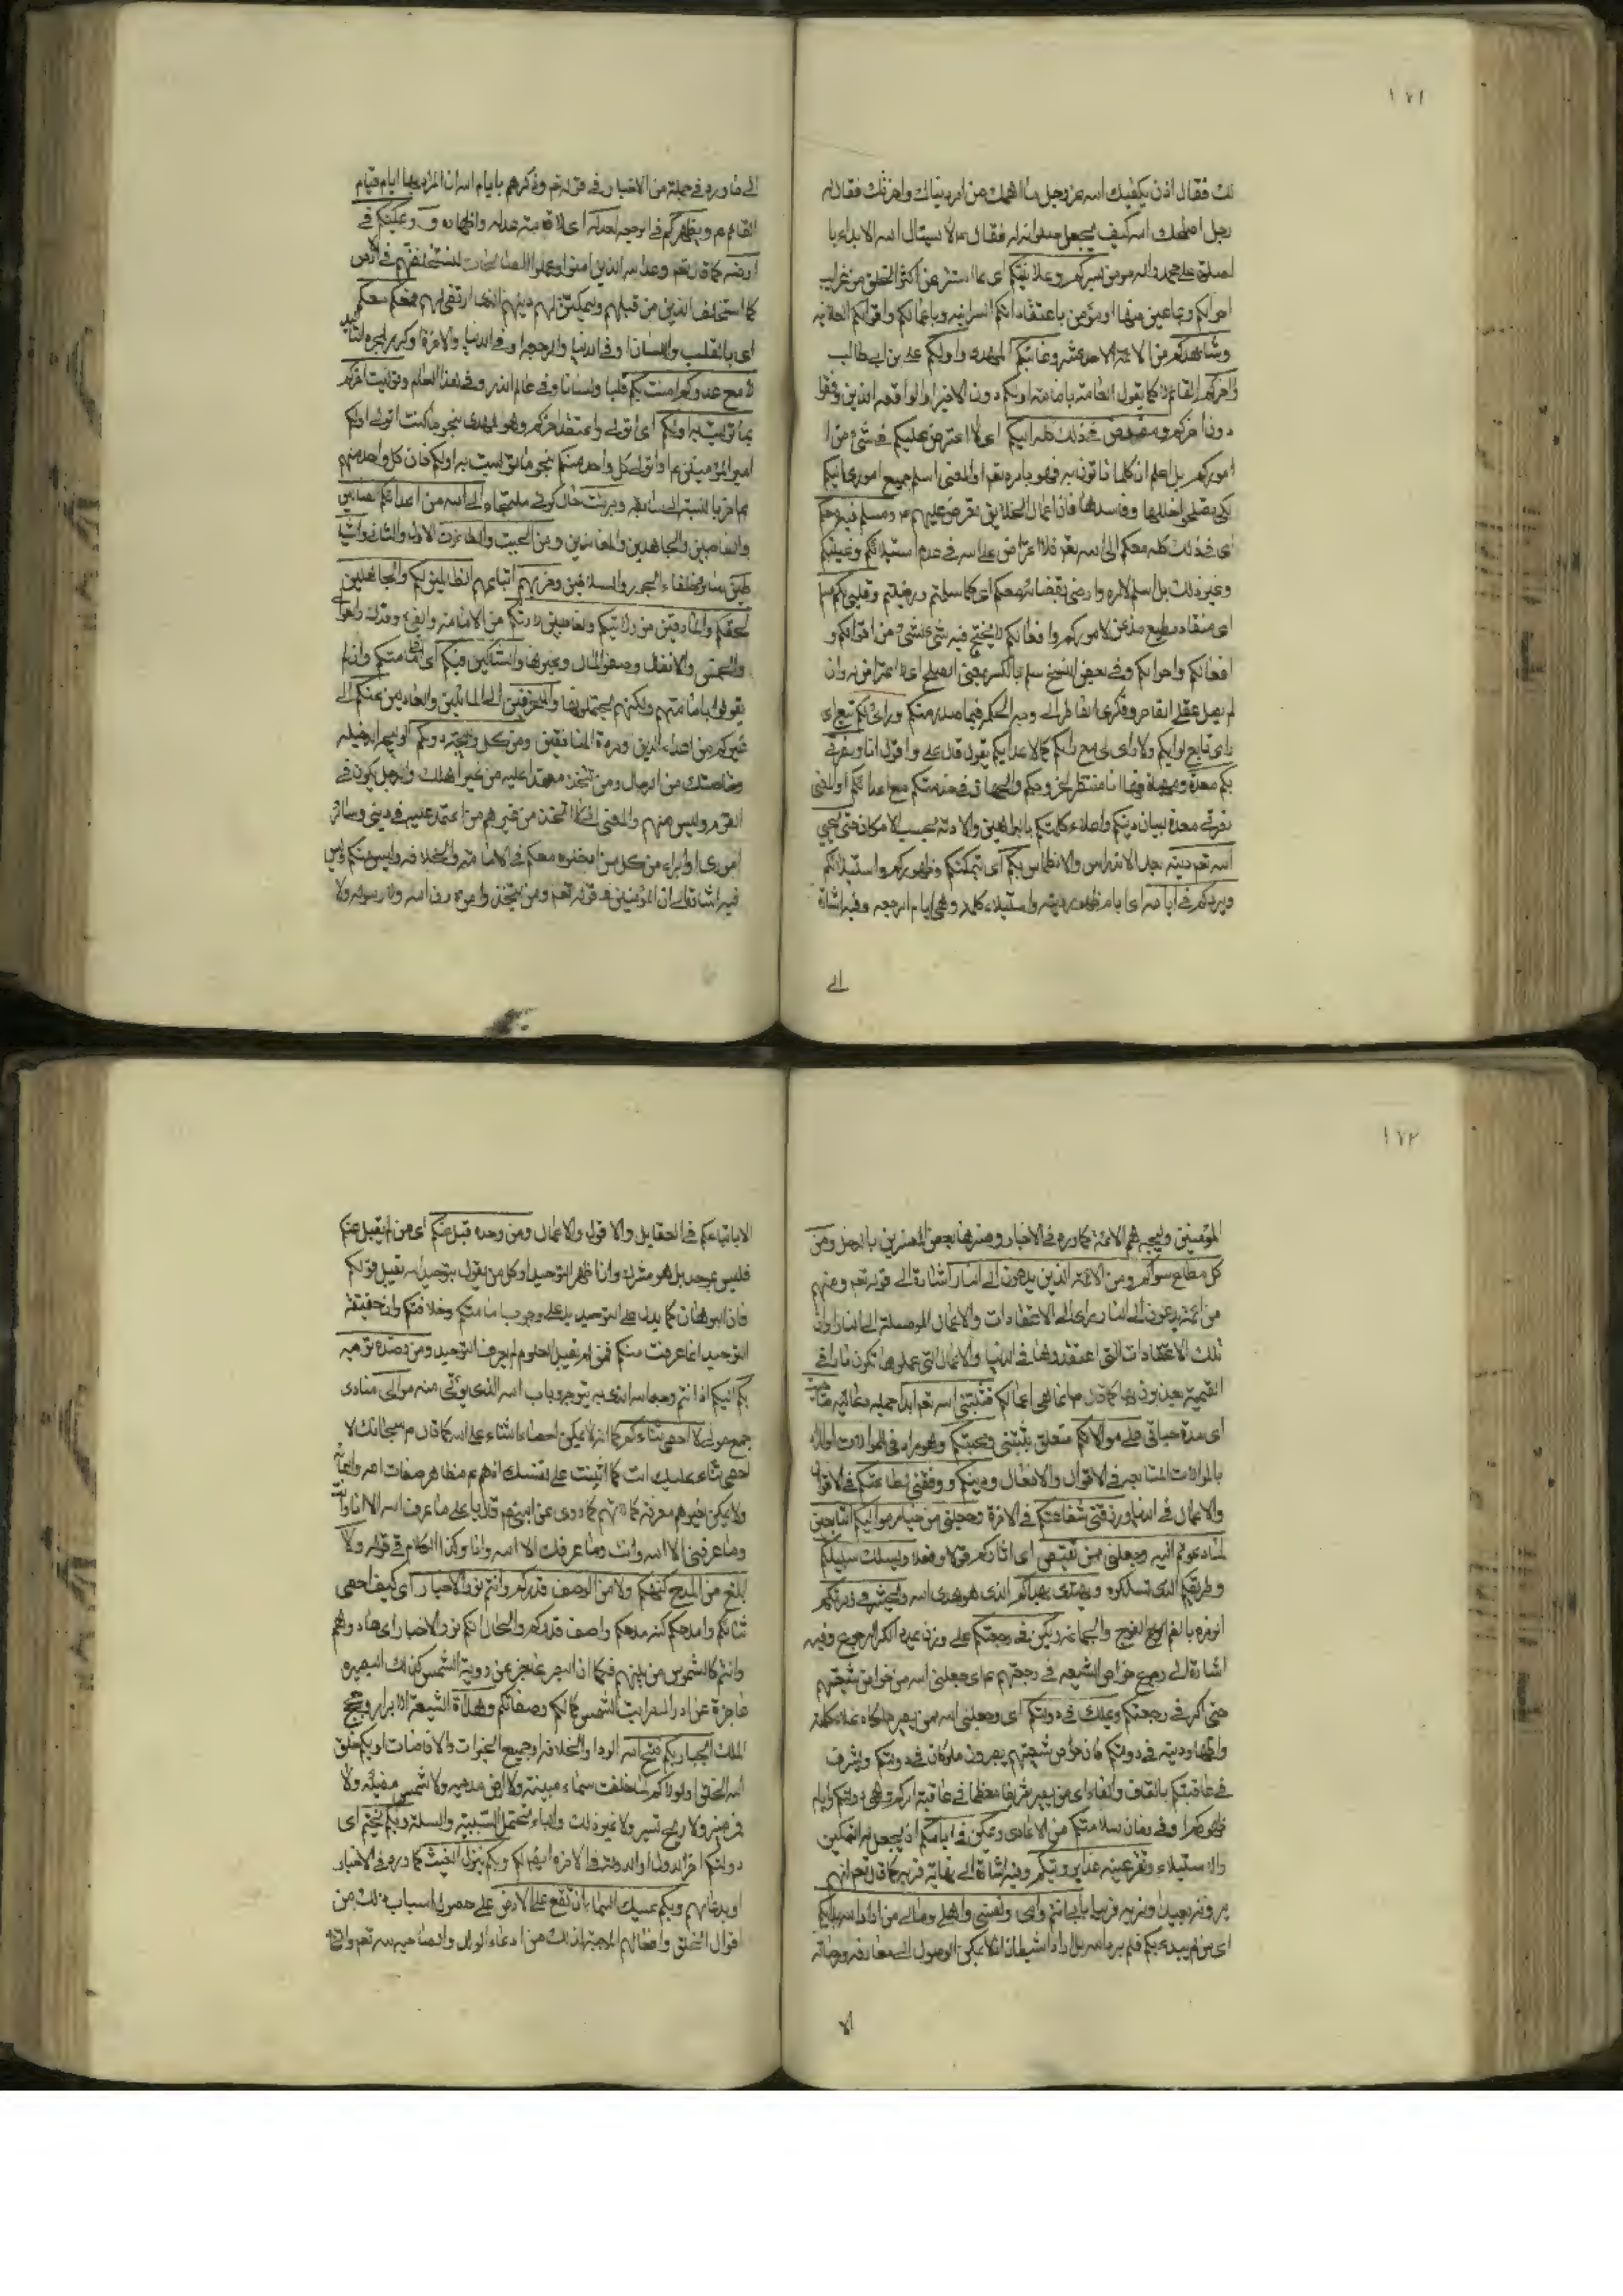 ١٧١
لك فقال اذن يكفيك الله عز وجل ما اهمك من امر دنياك واخرتك فقال له
رجل اصلحك الله كيف يجعل صلواته له فقال لا يسئال الله الا بداء با
لصلوة على محمد واله مومن بسركم وعلانيتكم اى بما استتر عن اكثر الخلق من غرايب
احوالكم وبما علن منها او مؤمن باعتقاداتكم السرانيه وباعمالكم واقوالكم العلانيه
وشاهدكم من الائمة الاحد عشر وغائبكم المهدى واولكم على بن ابى طالب
واخركم القائم لا كما يقول العامة بامامة اولكم دون الاخير او الواقفه الذين وقفوا
دون اخركم ومفوض فى ذلك كله اليكم اى لا اعترض عليكم فى شئ من ا
موركم بل اعلم ان كلما تاتون به فهو بامره تعم او المعنى اسلم جميع امورى اليكم
لكى تصلحوا خللها وفاسدها فان اعمال الخلايق تعرض عليهم ومسلم فيه معكم
اى فى ذلك كله معكم الى الله تعم فلا اعتراض على الله فى عدم استيلائكم وغيبتكم
وغير ذلك بل سلم لامره وارضى بقضائه معكم اى كما سلمتم ورضيتم وقلبى لكم سلم
اى منقاد مطيع مذعن لاموركم وافعالكم لا يختلج فيه شئ لشئ من اقوالكم و
افعالكم واحوالكم وفى بعض النسخ سلم بالكسر بمعنى الصلح اى لا اعتراض له وان
لم يصل عقلى القاصر وفكرى الفاطر الى وجه الحكم فيما صدر منكم ورائى لكم تبع اى
راى تابع لرايكم ولا راى لى مع رايكم كالاعدائكم يقول قال على واقول انا ونصرتى
لكم معدة ومهياة فها انا منتظر لخروجكم والجهاد فى خدمتكم مع اعدائكم او المعنى
نصرتى معدة لبيان دينكم واعلاء كلمتكم بالبراهين والادلة بحسب الامكان حتى يحيى
الله تعم دينه بعد الاندراس والانطماس بكم اى بتمكنكم وظهوركم واستيلائكم
ويردكم فى ايامه اى ايام ظهور دينه واستيلاء كلمه وهى ايام الرجعه وفيه اشارة
الى
الى ما ورد فى جملة من الاخبار فى قوله تعم وذكرهم بايام الله ان المراد بها ايام قيام
القائم م ويظهركم فى الرجعه لعدله اى لاقامة عدله واظهاره ويمكنكم فى
ارضه كما قال تعم وعد الله الذين امنوا وعملوا الصالحات ليستخلفنهم فى الارض
كما استخلف الذين من قبلهم وليمكنن لهم دينهم الذى ارتضى لهم فمعكم معكم
اى بالقلب واللسان او فى الدنيا والرجعه او فى الدنيا والاخرة او كرر لمجرد التاكيد
لا مع عدوكم امنت بكم قلبا ولسانا وفى عالم الذر وفى هذا العالم وتوليت اخركم
بما توليت به اولكم اى اتولى واعتقد اخركم وهو المهدى بنحو ما كنت اتولى اولكم
امير المؤمنين م او اتولى كل واحد منكم بنحو ما توليت به اولكم فان كل واحد منهم
م اخر بالنسبة الى سابقه وبرئت حال كونى ملتجاء الى الله من اعدائكم الناصبين
والغاصبين والجاهدين والمعاندين ومن الجبت والطاغوت الاول والثانى والشيا
طين سائر خلفاء الجور والسلاطين وحزبهم اتباعهم الظالمين لكم والجاهلين
لحقكم والمارقين من ولايتكم والغاصبين لارثكم من الامامة والفئ وفدك والعوالى
والخمس والانفال وصفو المال وغيرها والشاكين فيكم اى فى امامتكم وان لم
يقولوا بامامتهم ولكنهم يحتملونها والمنحرفين المائلين والعادلين عنكم الى
غيركم من اعداء الدين ومردة المنافقين ومن كل وليجة دونكم الوليجه الدخيله
وخاصتك من الرجال ومن تتخذه معتمدا عليه من غير اهلك والرجل يكون فى
القوم وليس منهم والمعنى انى لا اتخذ من غيرهم من اعتمد عليه فى دينى وسائر
امورى او ابراء من كل من ادخلوه معكم فى الامامة والخلافه وليس منكم وليس
فيه اشارة الى ان المؤمنين فى قوله تعم ومن يتخذ من دون الله ولا رسوله ولا
١٧٢
المؤمنين وليجه هم الائمة كما ورد فى الاخبار وفسرها بعض المفسرين بالدخل ومن
كل مطاع سواكم ومن الائمة الذين يدعون الى النار اشارة الى قوله تعم ومنهم
من ائمة يدعون الى النار اى الى الاعتقادات والاعمال الموصلة الى النار او ان
تلك الاعتقادات التى اعتقدوها فى الدنيا والاعمال التى عملوها تكون نارا فى
القيمة يعذبون بها كما قال م انما هى اعمالكم فثبتنى الله تعم ابدا جمله دعائية ما حييت
اى مدة حياتى على موالاتكم متعلق بثبتنى ومحبتكم وهو مراد فى الموالات او المراد
بالموالات المتابعه فى الاقوال والافعال ودينكم ووفقنى لطاعتكم فى الاقوال
والاعمال فى الدنيا ورزقنى شفاعتكم فى الاخرة وجعلنى من خيار مواليكم التابعين
لما دعوتم اليه وجعلنى ممن يقتص اى اثاركم قولا وفعلا ويسلك سبيلكم
وطريقكم الذى تسلكوه ويهتدى بهداكم الذى هو هدى الله ويحشر فى زمرتكم
الزمره بالضم الفوج والجماعة ويكر فى رجعتكم على وزن يمد الكر الرجوع وفيه
اشارة الى رجوع خواص الشيعه فى رجعتهم م اى جعلنى الله من خواص شيعتهم
حتى اكر فى رجعتكم ويملك فى دولتكم اى وجعلنى الله ممن يصير ملكا لاعلاء كلمة
واظهار دينه فى دولتكم فان خواص شيعتهم يصيرون ملوكا فى دولتكم ويشرف
فى عافيتكم بالقاف والفاء اى من يصير شريفا معظما فى عاقبة امركم وهى دولتكم وايام
ظهوركم او فى زمان سلامتكم من الاعادى ويمكن فى ايامكم اى يجعل له التمكين
والاستيلاء وتقر عينه غدا برؤيتكم وفيه اشارة الى نهاية قربه كما قال تعم انهم
يرونه بعيدا ونريه قريبا بابى انتم وامى ونفسى واهلى ومالى من اراد الله بدأ بكم
اى من لم يبدء بكم فلم يرد الله بل اراد الشيطان اذ لا يمكن الوصول الى معارفه ومرضاته
الا
الا باتباعكم فى العقايد والاقوال والاعمال ومن وحده قبل عنكم اى من لم يقبل عنكم
فليس بموحد بل هو مشرك وان اظهر التوحيد او كل من يقول بتوحيد الله يقبل قولكم
فان البرهان كما يدل على التوحيد يدل على وجوب امامتكم وخلافتكم وان حقيقة
التوحيد انما عرفت منكم فمن لم يقبل العلوم لم يعرف التوحيد ومن قصده توجه
بكم اليكم اذ انتم وجه الله الذى به يتوجه وباب الله الذى يؤتى منه موالى منادى
جمع مولى لا احصى ثناءكم كما انه لا يمكن احصاء الثناء على الله كما قال م سبحانك لا
احصى ثناء عليك انت كما اثنيت على نفسك اذ هم م مظاهر صفات الله واسمائه
ولا يمكن لغيرهم معرفة كمالاتهم كما روى عن النبى م قال يا على ما عرف الله الا انا وانت
وما عرفنى الا الله وانت وما عرفك الا الله وانا وكذا الكلام فى قوله ولا
ابلغ من المدح كنهكم ولا من الوصف قدركم وانتم نور الاخيار اى كيف احصى
ثنائكم وامدحكم كنه مدحكم واصف قدركم والحال انكم نور الاخيار اى هادوهم
وانتم كالشموس من بينهم فكما ان البصر عاجز عن روية الشمس كذلك البصيره
عاجزة عن ادراك مراتب الشمس كمالكم وصفاتكم وهداة الشيعة الابرار وحجج
الملك الجبار بكم فتح الله الوجود او الخلافه او جميع الخيرات والافاضات او بكم خلق
الله الخلق او لولاكم لما خلقت سماء مبنية ولا ارض مدحيه ولا شمس مضيئه ولا
قمر منير ولا ريح تسير ولا غير ذلك والباء تحتمل السببية والصلة وبكم يختم اى
دولتكم اخر الدول او الدولة فى الاخرة ايضا لكم وبكم ينزل الغيث كما ورد فى الاخبار
او بدعائهم وبكم يمسك السماء ان تقع على الارض على حصول اسباب ذلك من
اقوال الخلق وافعالهم الموجبة لذلك من ادعاء الولد والصاحبه لله تعم